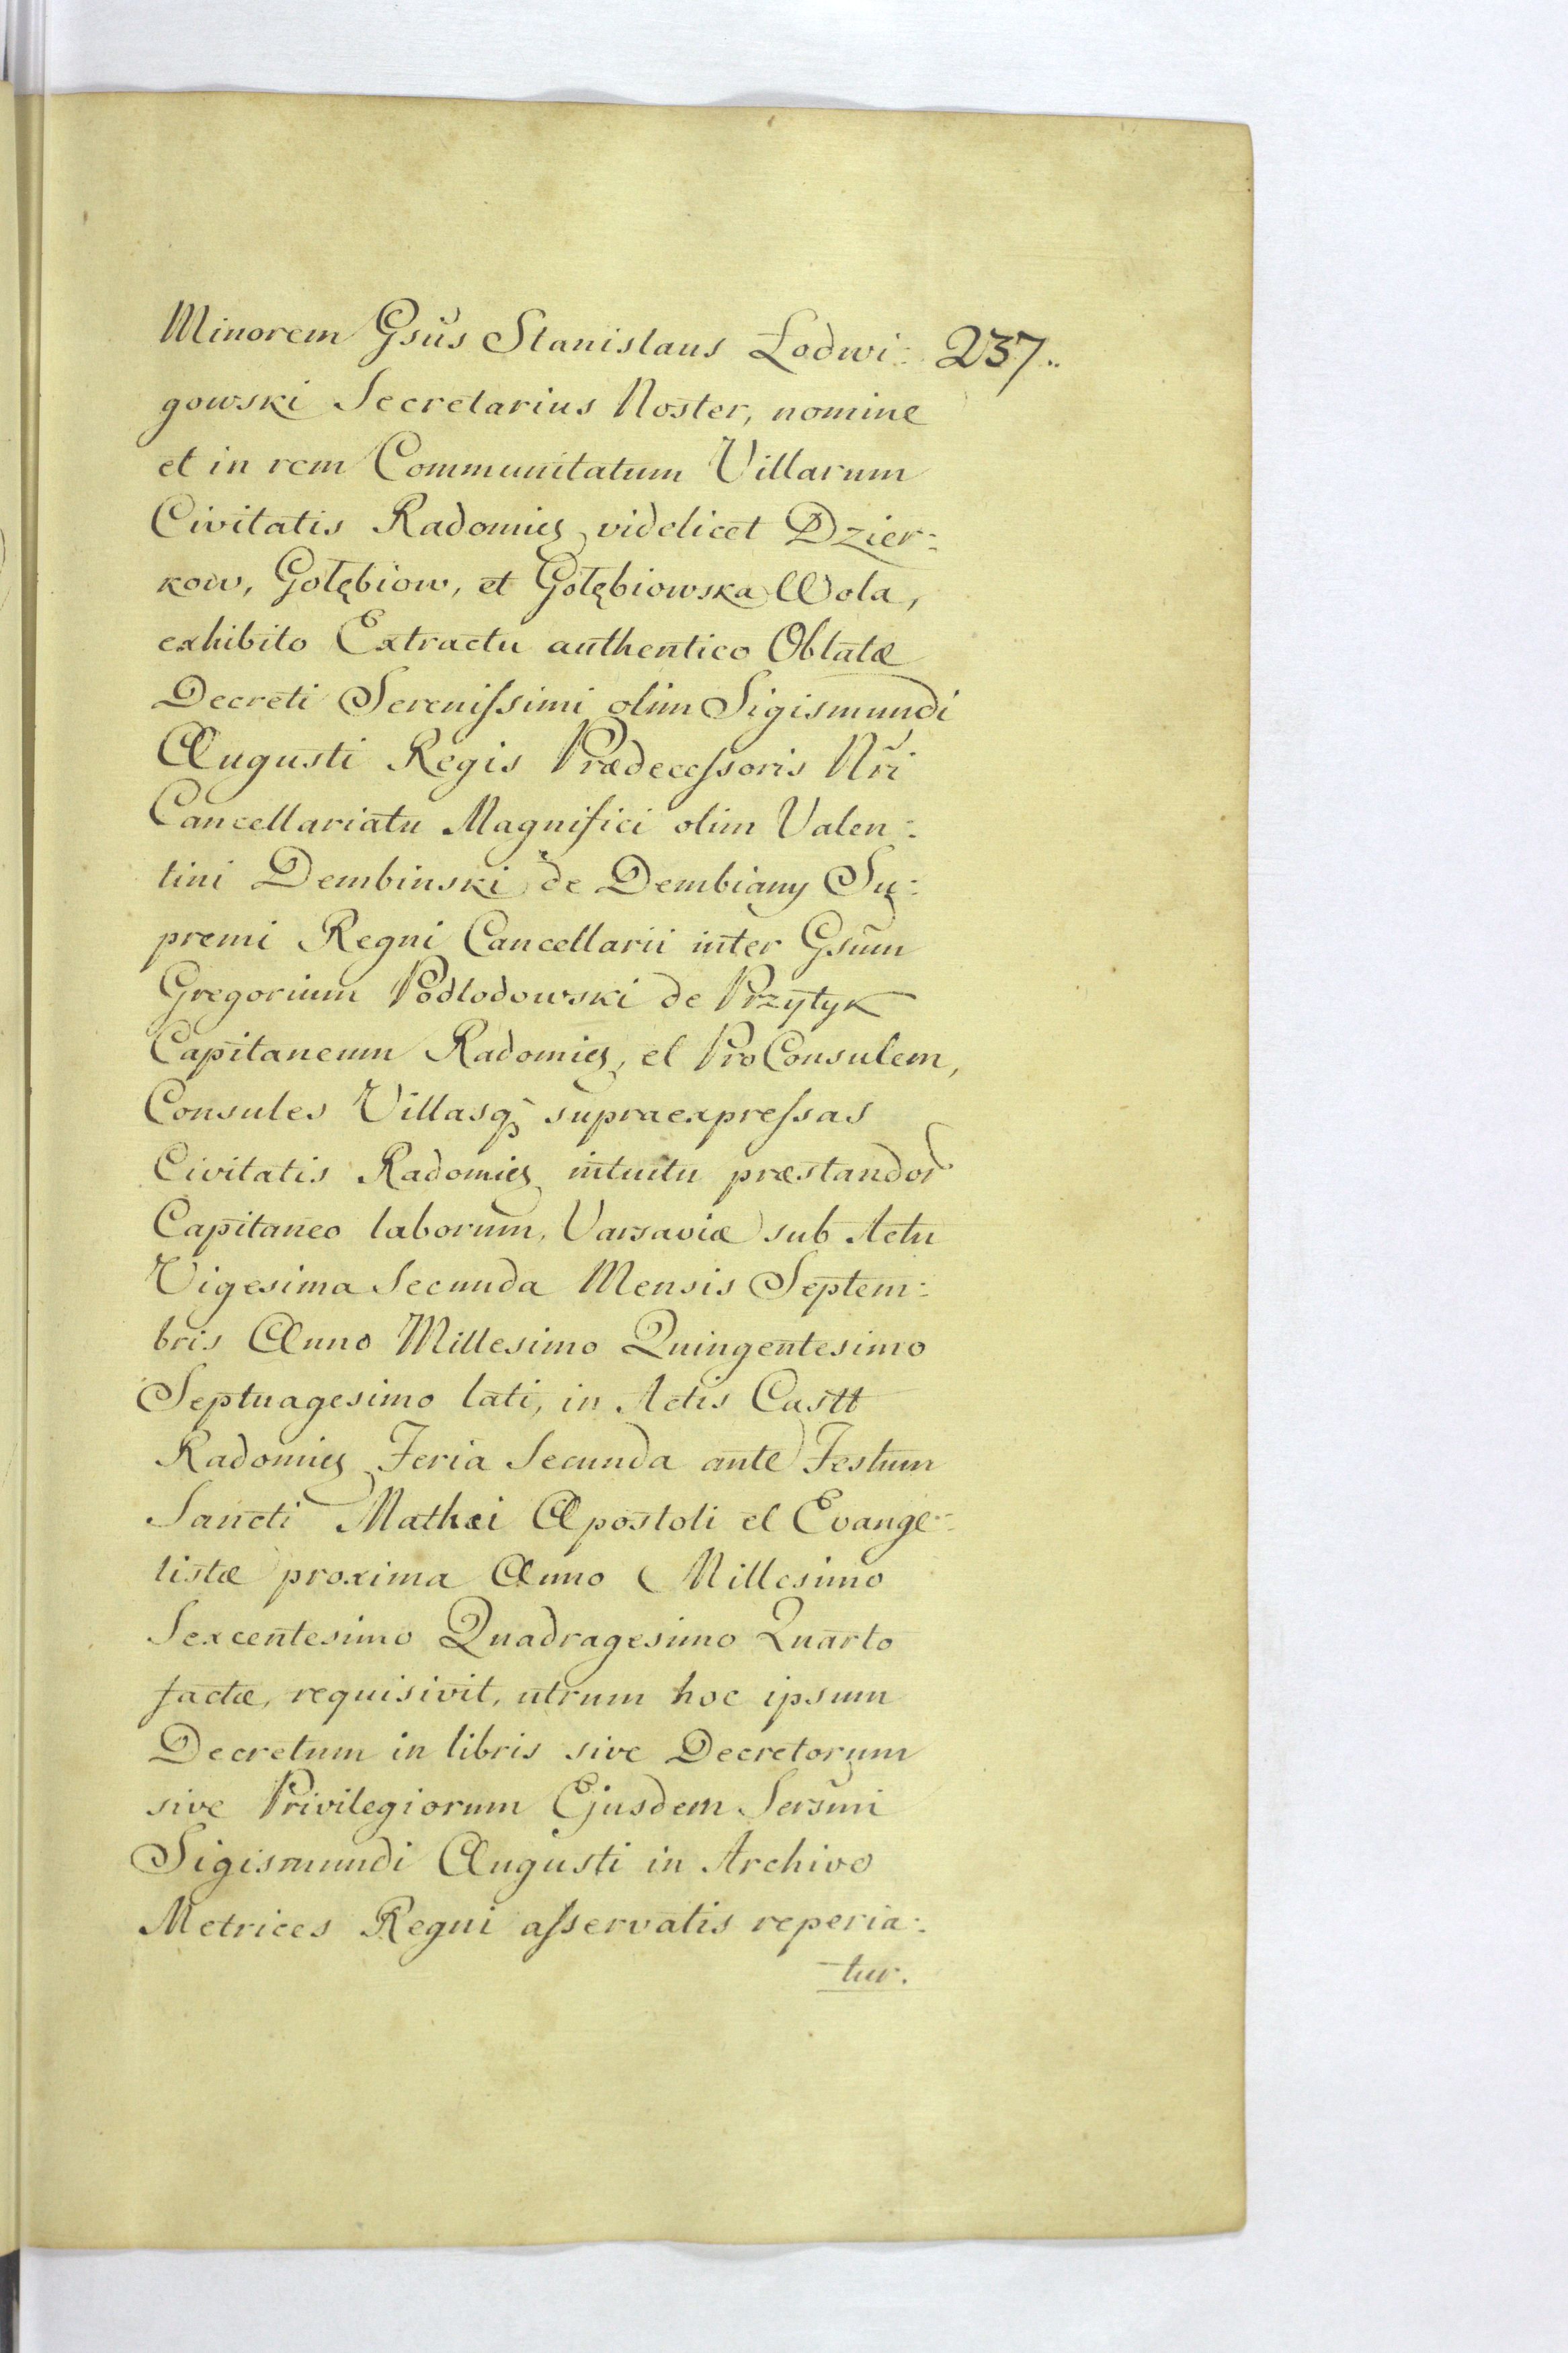 Minorem Gsūs Stanislaus Lodwi: 237..
gowski Secretarius Noster, nomine
et in rem Communitatum Villarum
Civitatis Radomieȷ videlicet Dzier:
kow, Gołębiow, et Gołębiowska Wola,
exhibito Extractu authentico Oblatæ
Decreti Sereniſsimi olim Sigismundi
Augusti Regis Prædeceſsoris Nr̃i
Cancellariatu Magnifici olim Valen:
tini Dembinski de Dembiany Su:
premi Regni Cancellarii inter Gsūm
Gregorium Podlodowski de Przytyk
Capitaneum Radomieȷ, et ProConsulem,
Consules Villasq̃ supraexpreſsas
Civitatis Radomieȷ intuitu præstandor
Capitaneo laborum, Varsaviæ sub Actu
Vigesima Secunda Mensis Septem:
bris Anno Millesimo Quingentesimo
Septuagesimo lati, in Actis Castt
Radomieȷ Feria Secunda ante Festum
Sancti Mathæi Apostoli et Evange:
listæ proxima Anno Millesimo
Sexcentesimo Quadragesimo Quarto
factæ, requisivit, utrum hoc ipsum
Decretum in libris sive Decretorum
sive Privilegiorum Ejusdem Sersm̃i
Sigismundi Augusti in Archivo
Metrices Regni aſservatis reperia:
tur.